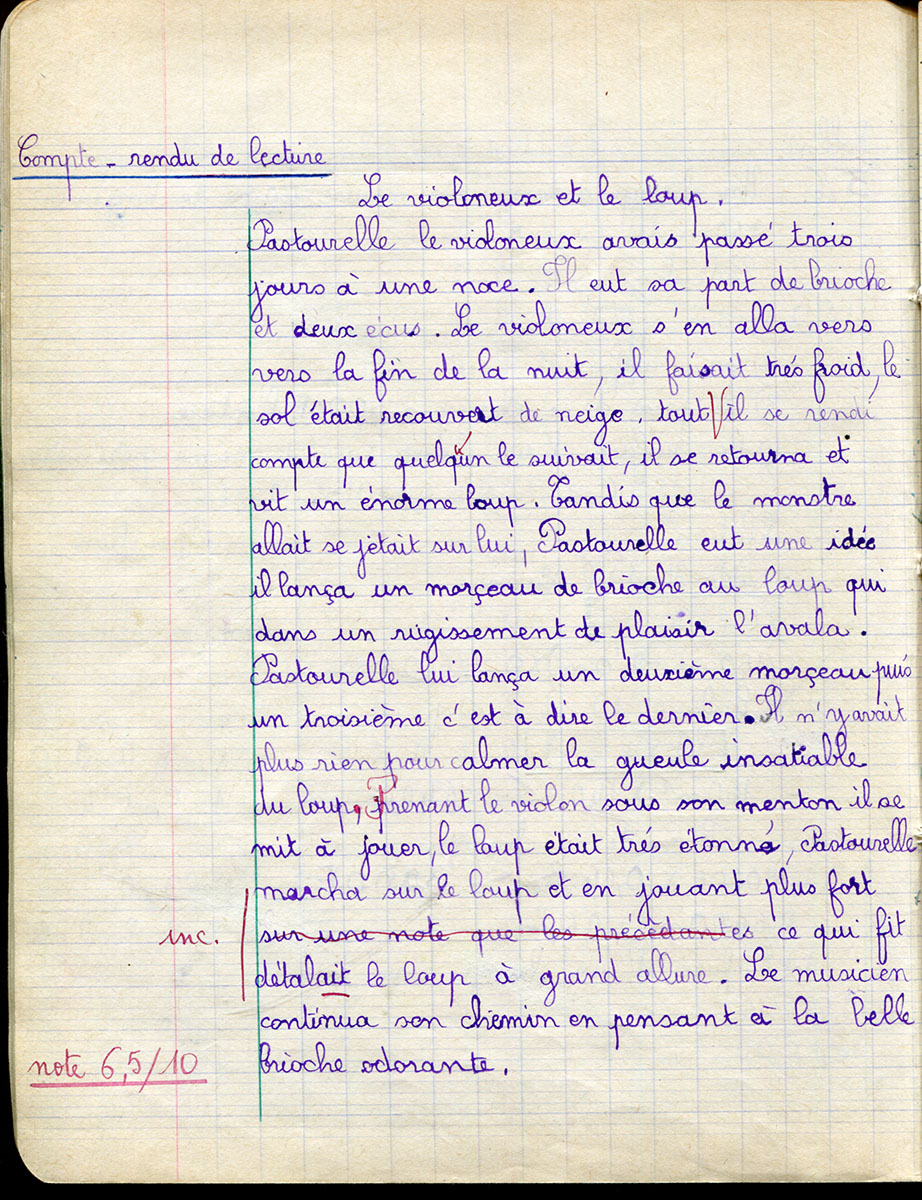 Compte-rendu de lecture
Le violoneux et le loup.
Pastourelle le violoneux avais passé trois
jours à une noce. Il eut sa part de brioche
et deux écus. Le violoneux s'en alla vers
vers la fin de la nuit, il faisait trés froid, le
sol était recouvert de neige, tout il se rendi
compte que quelqun le suivait, il se retourna et
vit un énorme loup. Tandis que le monstre
allait se jétait sur lui, Pastourelle eut une idée
il lança un morçeau de brioche au loup qui
dans un rugissement de plaisir l'avala.
Pastourelle lui lança un deuxième morçeau puis
un troisième c'est à dire le dernier. Il n'y avait
plus rien pour calmer la gueule insatiable
du loup, Prenant le violon sous son menton il se
mit à jouer, le loup était trés étonné, Pastourelle
marcha sur le loup et en jouant plus fort
inc. sur une note que les précédantes ce qui fit
détalait le loup à grand allure. Le musicien
continua son chemin en pensant à la belle
note 6,5/10 brioche odorante.